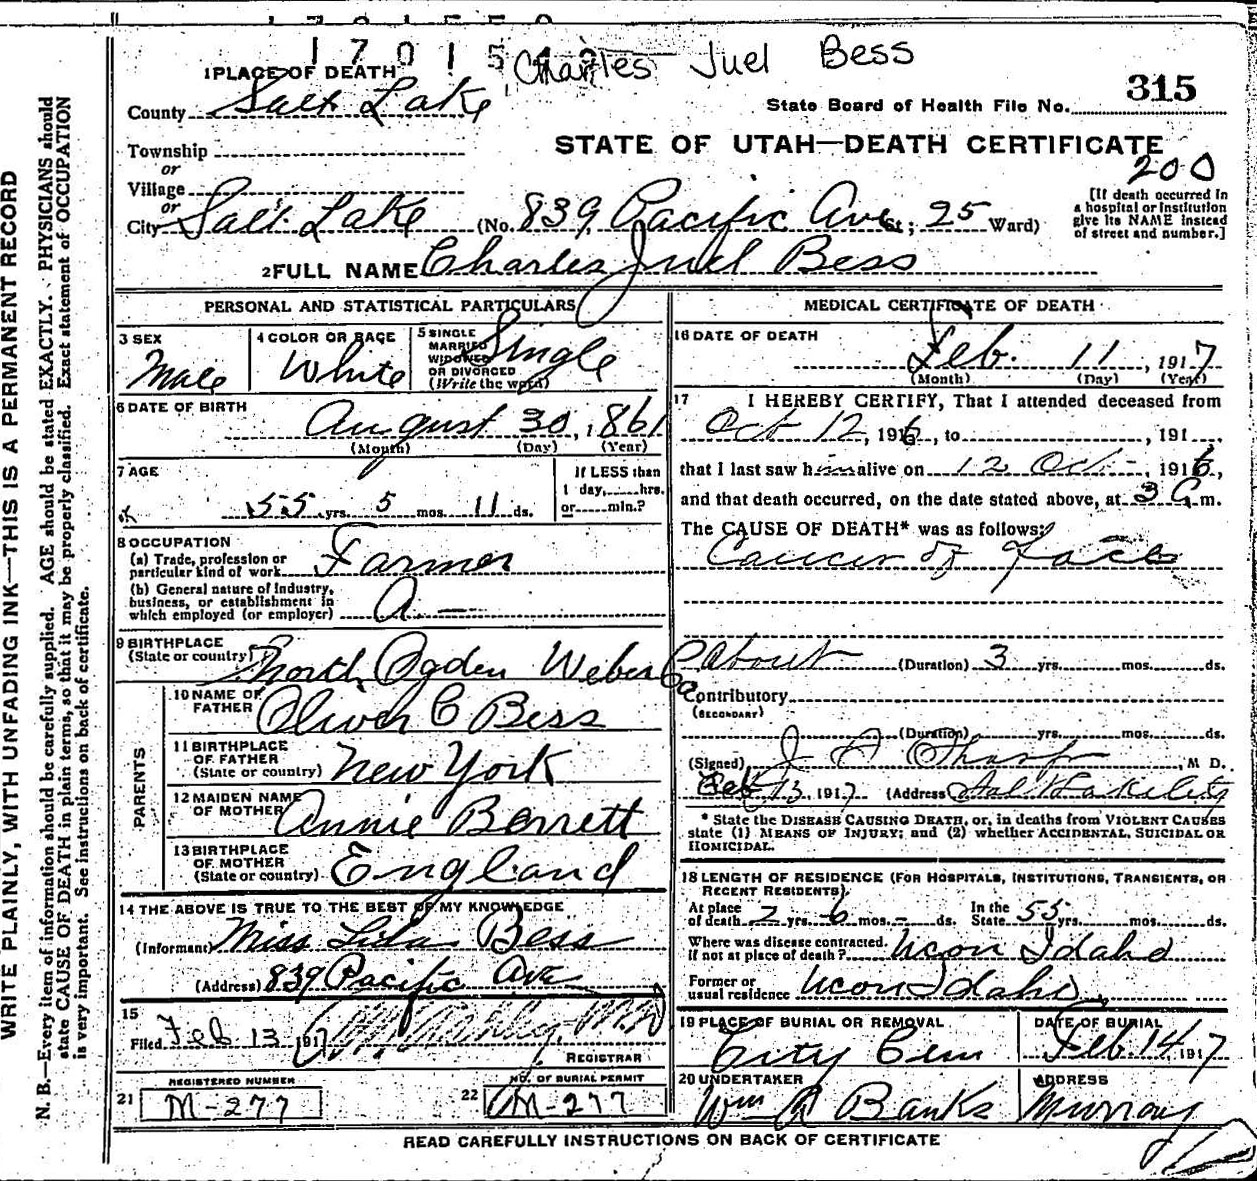 1 7 0 1 5
Charles Juel Bess
1 PLACE OF DEATH
County Salt Lake
State Board of Health File No. 315
STATE OF UTAH—DEATH CERTIFICATE
200
Township
or
Village
or
City Salt Lake (No. 839 Pacific Ave St; 25 Ward)
[If death occurred in
a hospital or institution
give its NAME instead
of street and number.]
2 FULL NAME Charles Juel Bess
PERSONAL AND STATISTICAL PARTICULARS
3 SEX
Male
4 COLOR OR RACE
White
5 SINGLE
MARRIED
WIDOWED
OR DIVORCED
(Write the word)
Single
6 DATE OF BIRTH
August 30, 1861
(Month) (Day) (Year)
7 AGE
55 yrs. 5 mos. 11 ds.
If LESS than
1 day,......hrs.
or......min.?
8 OCCUPATION
(a) Trade, profession or
particular kind of work Farmer
(b) General nature of industry,
business, or establishment in
which employed (or employer)
9 BIRTHPLACE
(State or country) North Ogden Weber Co
PARENTS
10 NAME OF
FATHER Oliver C Bess
11 BIRTHPLACE
OF FATHER
(State or country) New York
12 MAIDEN NAME
OF MOTHER Annie Berrett
13 BIRTHPLACE
OF MOTHER
(State or country) England
14 THE ABOVE IS TRUE TO THE BEST OF MY KNOWLEDGE
(Informant) Miss Lida Bess
(Address) 839 Pacific Ave
15
Filed Feb 13 1917
REGISTRAR
21 REGISTERED NUMBER
M-277
22 NO. OF BURIAL PERMIT
M-277
MEDICAL CERTIFICATE OF DEATH
16 DATE OF DEATH
Feb. 11, 1917
(Month) (Day) (Year)
17 I HEREBY CERTIFY, That I attended deceased from
Oct 12, 1916, to , 191 ,
that I last saw him alive on 12 Oct 1916,
and that death occurred, on the date stated above, at 3 a.m.
The CAUSE OF DEATH* was as follows:
Cancer of face
About (Duration) 3 yrs. mos. ds.
Contributory
(SECONDARY)
(Duration) yrs. mos. ds.
(Signed) , M D.
Feb 13, 1917 (Address) Salt Lake City
* State the DISEASE CAUSING DEATH, or, in deaths from VIOLENT CAUSES
state (1) MEANS OF INJURY; and (2) whether ACCIDENTAL, SUICIDAL OR
HOMICIDAL.
18 LENGTH OF RESIDENCE (FOR HOSPITALS, INSTITUTIONS, TRANSIENTS, OR
RECENT RESIDENTS).
At place
of death 2 yrs. 6 mos. - ds. In the
State 55 yrs. mos. ds.
Where was disease contracted,
if not at place of death? Ucon Idaho
Former or
usual residence Ucon Idaho
19 PLACE OF BURIAL OR REMOVAL
City Cem
DATE OF BURIAL
Feb. 14 1917
20 UNDERTAKER
Wm R Banks
ADDRESS
Murray
READ CAREFULLY INSTRUCTIONS ON BACK OF CERTIFICATE
WRITE PLAINLY, WITH UNFADING INK—THIS IS A PERMANENT RECORD
N. B.—Every item of information should be carefully supplied. AGE should be stated EXACTLY. PHYSICIANS should
state CAUSE OF DEATH in plain terms, so that it may be properly classified. Exact statement of OCCUPATION
is very important. See instructions on back of certificate.